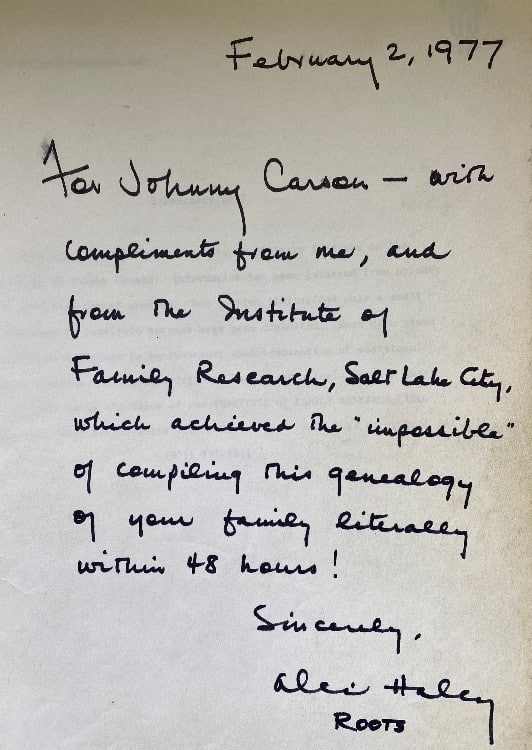 February 2, 1977
For Johnny Carson — with
compliments from me, and
from the Institute of
Family Research, Salt Lake City,
which achieved the "impossible"
of compiling this genealogy
of your family literally
within 48 hours!
Sincerely,
Alex Haley
ROOTS